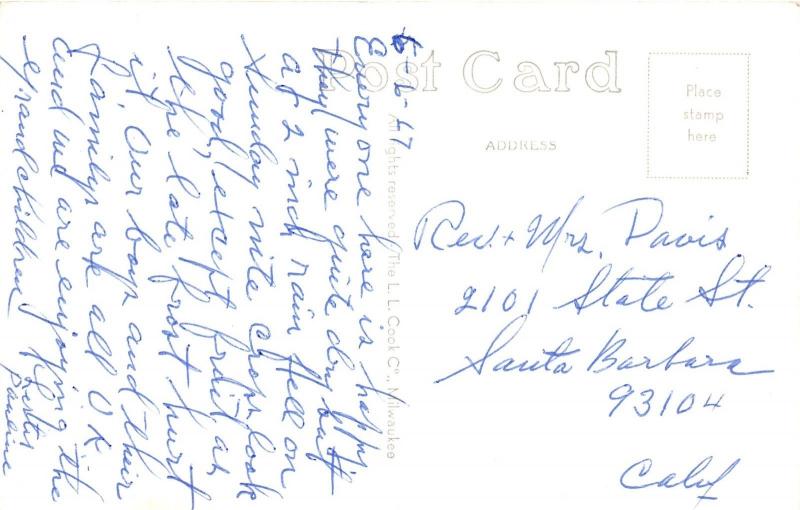 6-6-67
Everyone here is happy
they were quite dry but
a 2 inch rain fell on
Sunday nite crops look
good, except fruit as
the late frost hurt
it. Our boys and their
familys are all OK
and we are enjoying the
grandchildren
Pauline
Post Card
Place
stamp
here
ADDRESS
All rights reserved/The L. L. Cook Co., Milwaukee
Rev. + Mrs. Davis
2101 State St.
Santa Barbara
93104
Calif